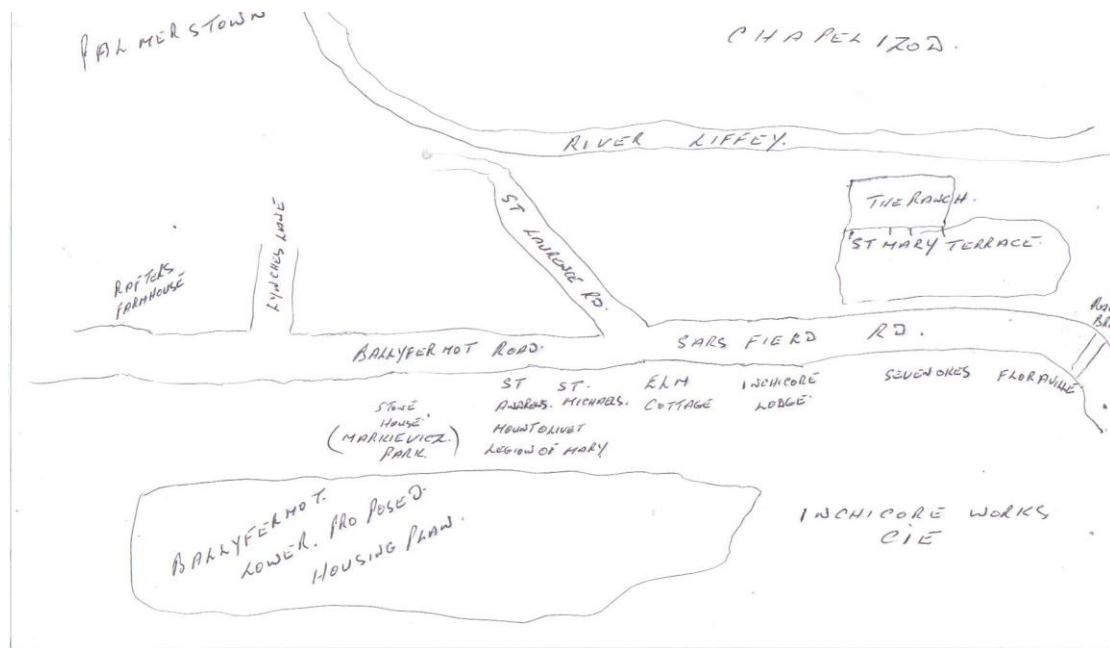 PALMERSTOWN
CHAPELIZOD.
RIVER LIFFEY.
THE RANCH.
ST MARY TERRACE.
ST LAURENCE RD.
LYNCHES LANE
RAFTERS
FARMHOUSE
BALLYFERMOT ROAD.
SARSFIERD RD.
ST ANDREWS.
ST. MICHAELS.
MOUNT OLIVET
LEGION OF MARY
ELM
COTTAGE
INCHICORE
LODGE.
SEVENOKES
FLORAVILLE
STONE
HOUSE.
(MARKIEVICZ
PARK.)
BALLYFERMOT.
LOWER. PROPOSED.
HOUSING PLAN.
INCHICORE WORKS
CIE